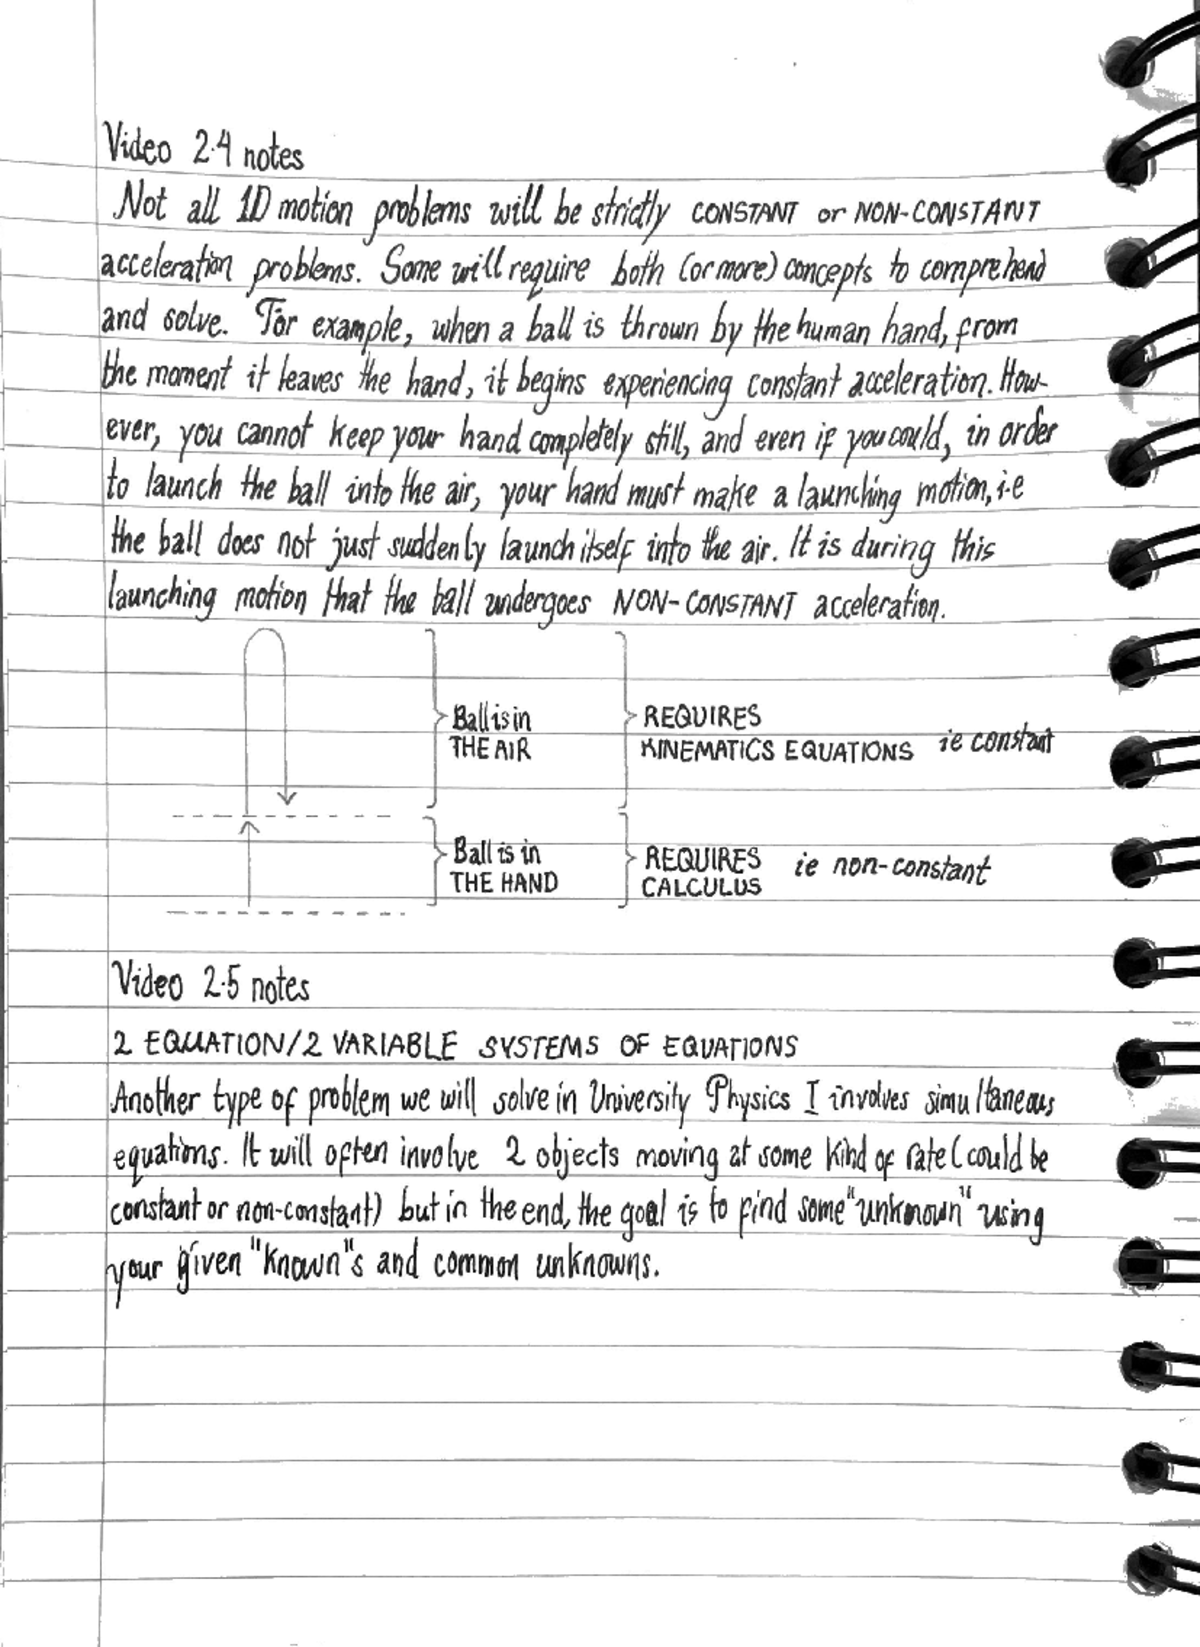 Video 2.4 notes
Not all 1D motion problems will be strictly CONSTANT or NON-CONSTANT
acceleration problems. Some will require both (or more) concepts to comprehend
and solve. For example, when a ball is thrown by the human hand, from
the moment it leaves the hand, it begins experiencing constant acceleration. How-
ever, you cannot keep your hand completely still, and even if you could, in order
to launch the ball into the air, your hand must make a launching motion, i.e
the ball does not just suddenly launch itself into the air. It is during this
launching motion that the ball undergoes NON-CONSTANT acceleration.
Ball is in REQUIRES
THE AIR KINEMATICS EQUATIONS ie constant
Ball is in REQUIRES ie non-constant
THE HAND CALCULUS
Video 2.5 notes
2 EQUATION/2 VARIABLE SYSTEMS OF EQUATIONS
Another type of problem we will solve in University Physics I involves simultaneous
equations. It will often involve 2 objects moving at some kind of rate (could be
constant or non-constant) but in the end, the goal is to find some "unknown" using
your given "known"s and common unknowns.